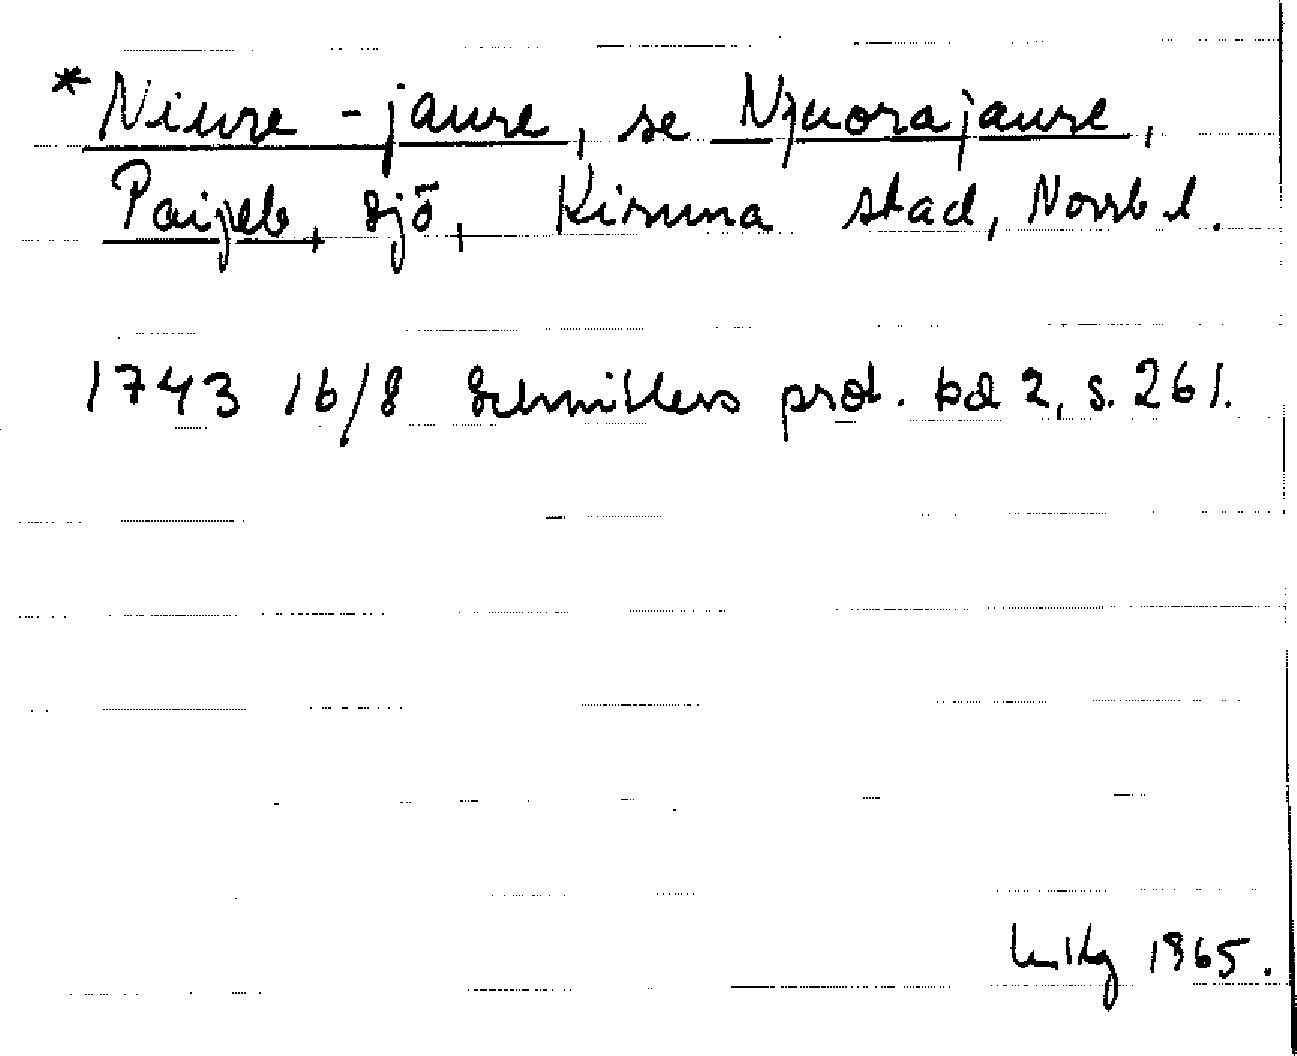 *Niure-jaure, se Njuorajaure,
Paijeb, sjö, Kiruna stad, Norrb l.
1743 16/8 Schnitlers prot. bd 2, s. 261.
1965.